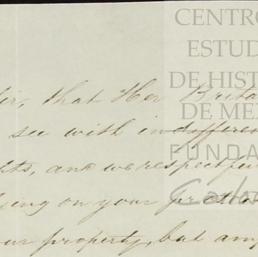 CENTRO
ESTUD
DE HIST
DE ME
FUNDA
Ca
sir, that Her Brita
see with indifferen
ts, and we respectfu
ing on your prot
our property, but am